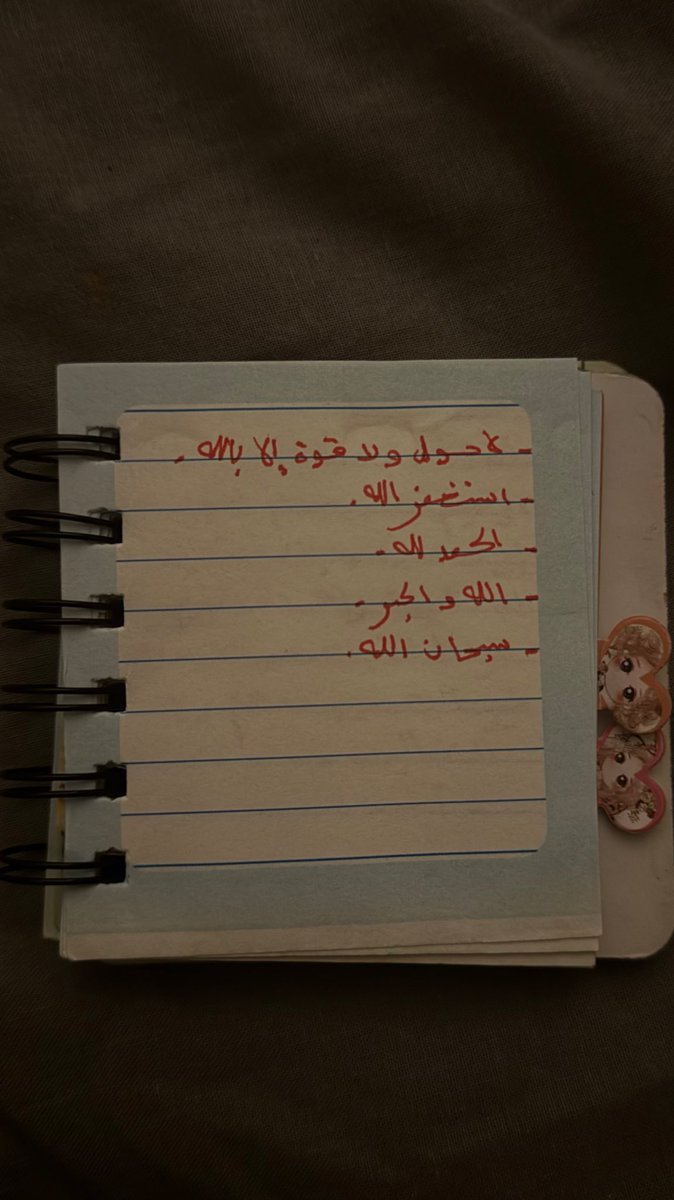 - لا حول ولا قوة إلا بالله.
- استغفر الله.
- الحمد لله.
- الله و اكبر.
- سبحان الله.